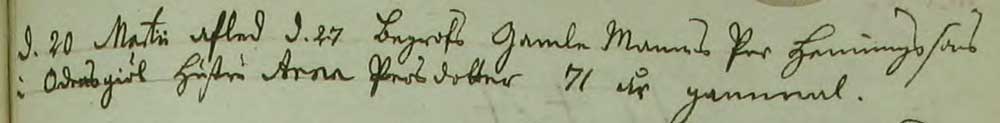 d. 20 Martii afled d. 27 Begrofs Gamle Manens Per Hemmingssons
i Odensgiöl Hustru Anna Persdotter 71 år gammal.